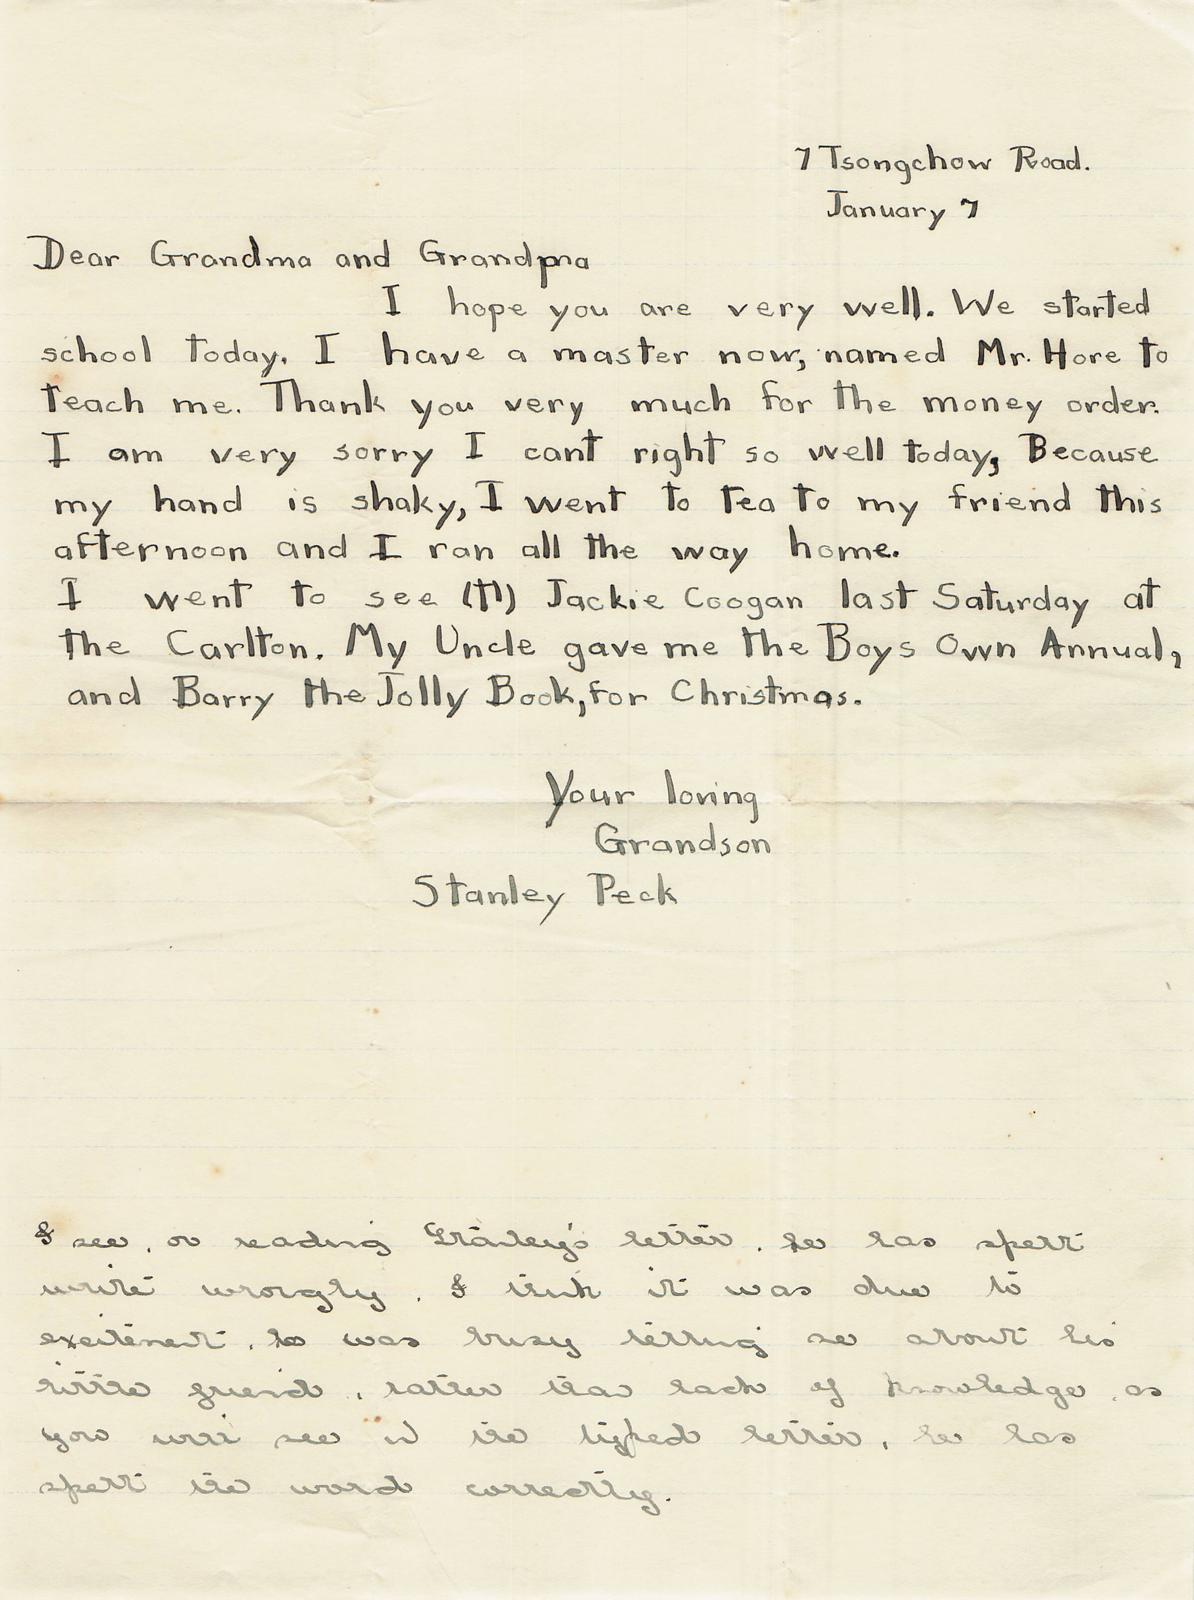 7 Tsongchow Road.
January 7
Dear Grandma and Grandpa
I hope you are very well. We started
school today. I have a master now, named Mr. Hore to
teach me. Thank you very much for the money order.
I am very sorry I cant right so well today, Because
my hand is shaky, I went to tea to my friend this
afternoon and I ran all the way home.
I went to see (th) Jackie Coogan last Saturday at
the Carlton. My Uncle gave me the Boys Own Annual,
and Barry the Jolly Book, for Christmas.
Your loving
Grandson
Stanley Peck
I see, on reading Stanley's letter, he has spelt
write wrongly. I think it was due to
excitement, he was busy telling me about his
little friend, rather than lack of knowledge, as
you will see in the typed letter, he has
spelt the word correctly.